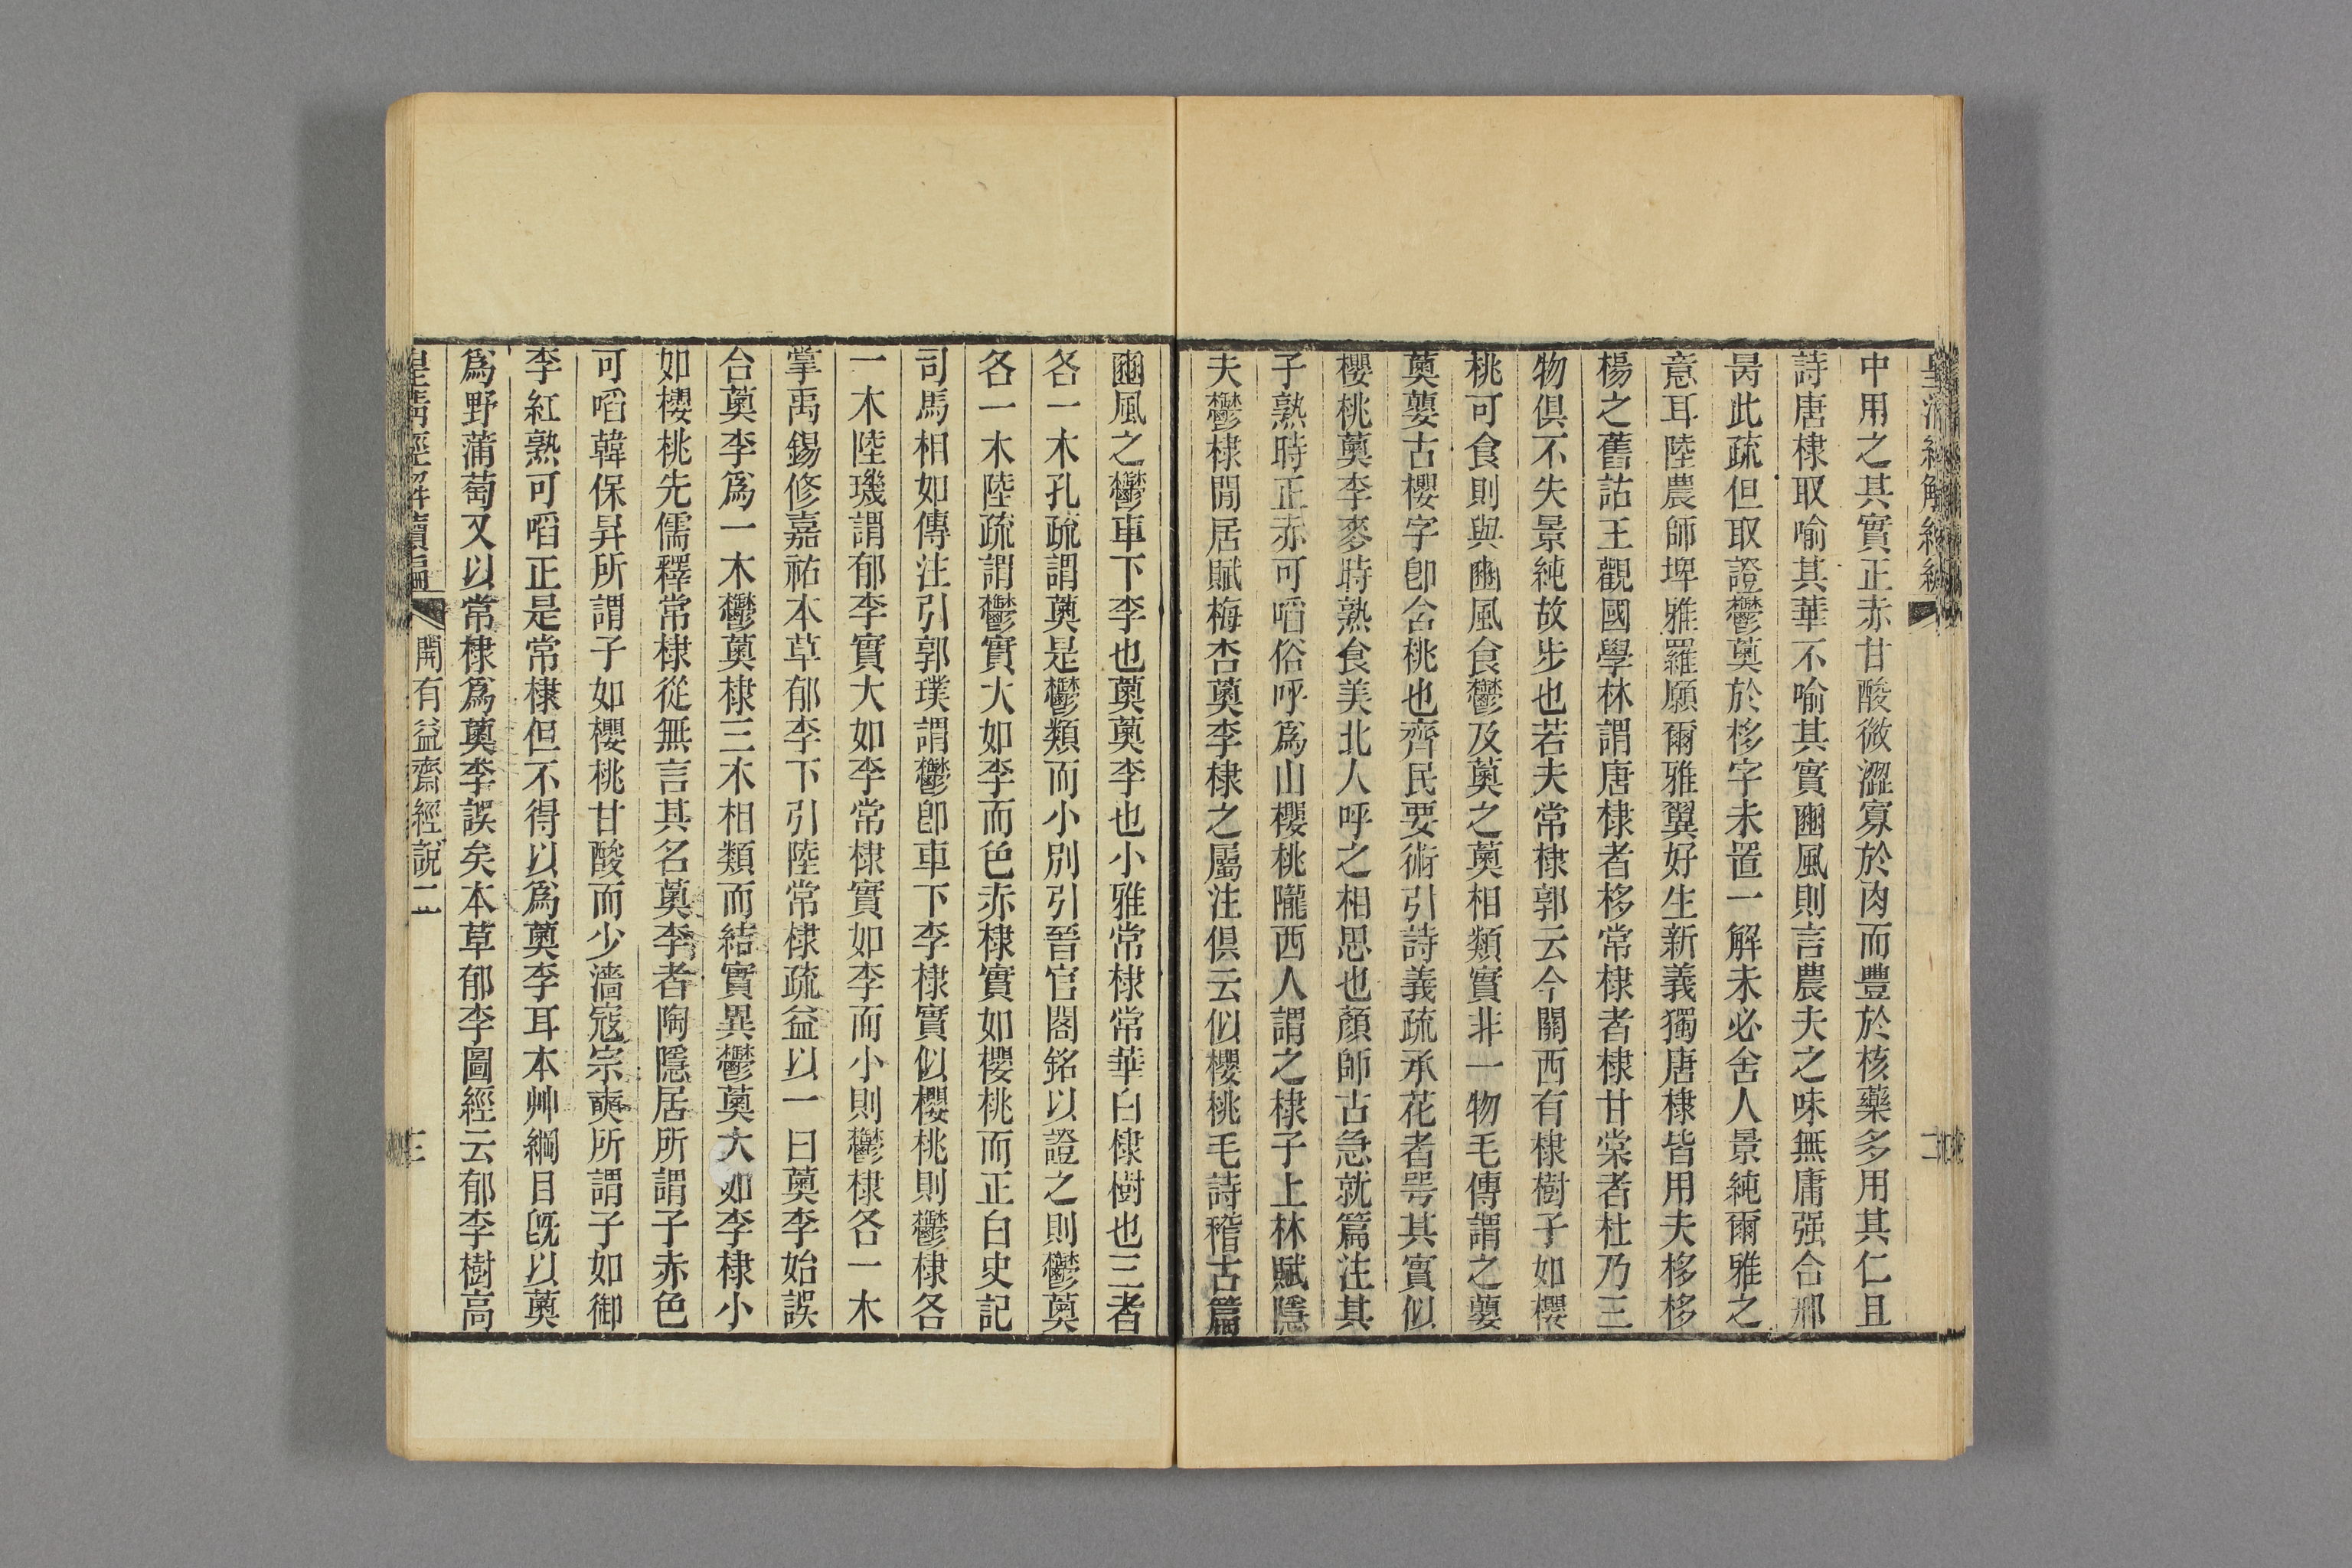 中用之其實正赤甘酸微澀寡於肉而豐於核藥多用其仁且
詩唐棣取喻其華不喻其實豳風則言農夫之味無庸强合邢
昺此疏但取證鬱薁於栘字未置一解未必舍人景純爾雅之
意耳陸農師埤雅羅願爾雅翼好生新義獨唐棣皆用夫栘栘
楊之舊詁王觀國學林謂唐棣者栘常棣者棣甘棠者杜乃三
物俱不失景純故步也若夫常棣郭云今關西有棣樹子如櫻
桃可食則與豳風食鬱及薁之薁相類實非一物毛傳謂之蘡
薁蘡古櫻字卽含桃也齊民要術引詩義疏承花者咢其實似
櫻桃薁李麥時熟食美北人呼之相思也顏師古急就篇注其
子熟時正赤可啗俗呼爲山櫻桃隴西人謂之棣子上林賦隱
夫鬱棣閒居賦梅杏薁李棣之屬注俱云似櫻桃毛詩稽古篇
豳風之鬱車下李也薁薁李也小雅常棣常華白棣樹也三者
各一木孔疏謂薁是鬱類而小別引晉宮閣銘以證之則鬱薁
各一木陸疏謂鬱實大如李而色赤棣實如櫻桃而正白史記
司馬相如傳注引郭璞謂鬱卽車下李棣實似櫻桃則鬱棣各
一木陸璣謂郁李實大如李常棣實如李而小則鬱棣各一木
掌禹錫修嘉祐本草郁李下引陸常棣疏益以一曰薁李始誤
合薁李爲一木鬱薁棣三木相類而結實異鬱薁大如李棣小
如櫻桃先儒釋常棣從無言其名薁李者陶隱居所謂子赤色
可啗韓保昇所謂子如櫻桃甘酸而少濇寇宗奭所謂子如御
李紅熟可啗正是常棣但不得以爲薁李耳本艸綱目旣以薁
爲野蒲萄又以常棣爲薁李誤矣本草郁李圖經云郁李樹高
皇淸經解續編
開有益齋經說二
三